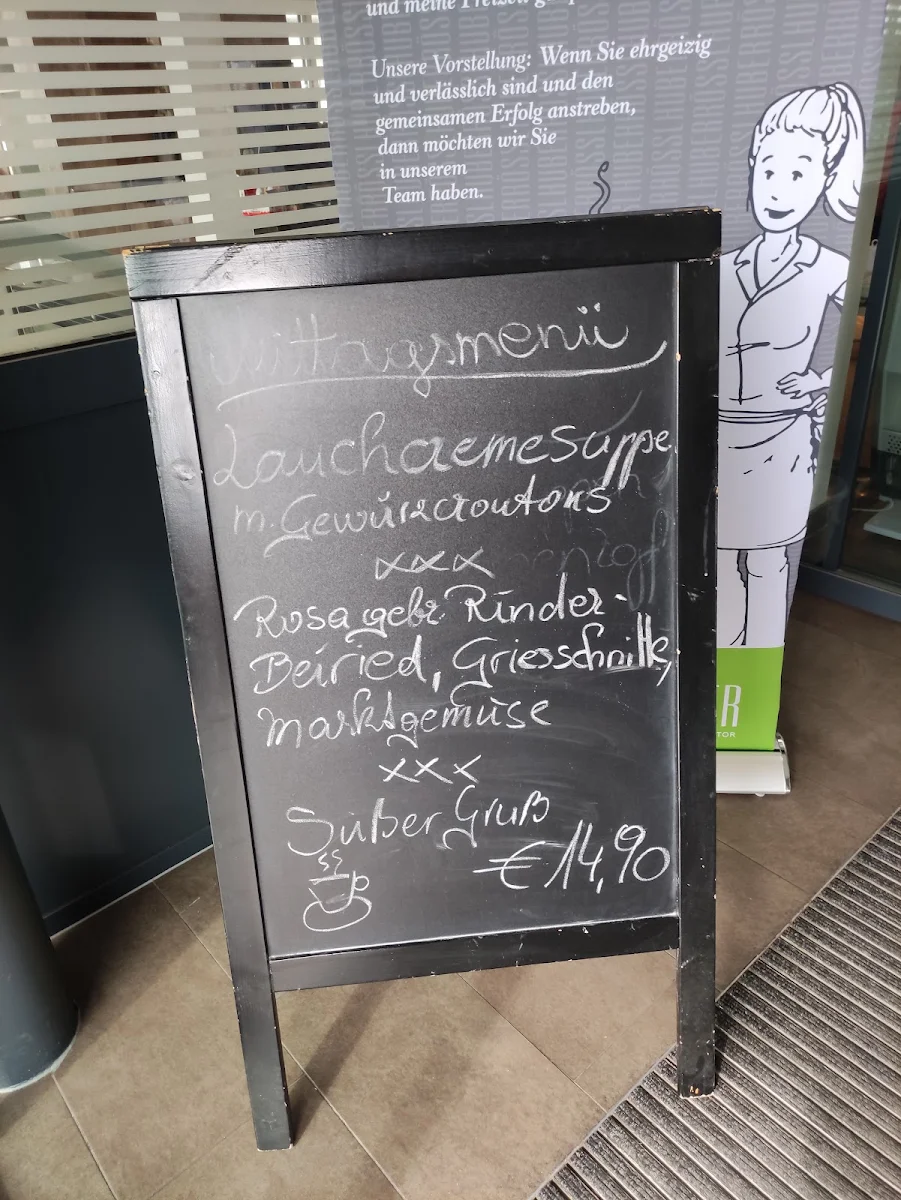 und meine Freizeit
Unsere Vorstellung: Wenn Sie ehrgeizig
und verlässlich sind und den
gemeinsamen Erfolg anstreben,
dann möchten wir Sie
in unserem
Team haben.
Mittagsmenü
Lauchcremesuppe
m. Gewürzcroutons
xxx
Rosa gebr Rinder-
Beiried, Griesschnitte,
Marktgemüse
xxx
Süßer Gruß
€ 14,90